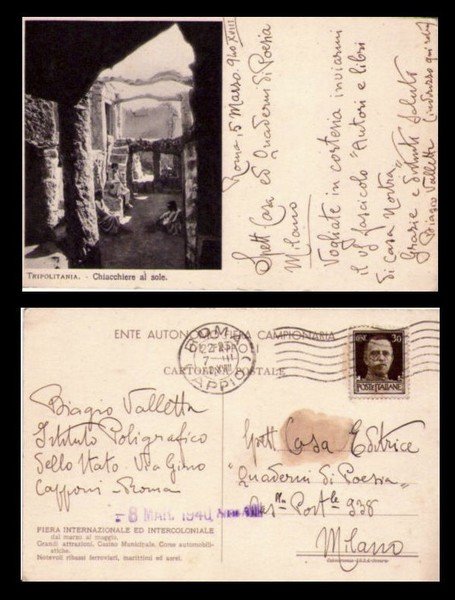 TRIPOLITANIA. - Chiacchiere al sole.
Roma, 5 Marzo 940 XVIII
Spett Casa ed Quaderni di Poesia
Milano
Vogliate in cortesia inviarmi
il vs fascicolo "Autori e libri
di Casa Nostra"
Grazie e distinti saluti
Biagio Valletta (indirizzo qui retro)
ENTE AUTONOMO FIERA CAMPIONARIA
CARTOLINA POSTALE
ROMA
APPIO
CENT 30
POSTE ITALIANE
Biagio Valletta
Istituto Poligrafico
dello Stato. Via Gino
Capponi - Roma
- 8 MAR. 1940
FIERA INTERNAZIONALE ED INTERCOLONIALE
dal marzo al maggio.
Grandi attrazioni. Casino Municipale. Corse automobili-
stiche.
Notevoli ribassi ferroviari, marittimi ed aerei.
Spett Casa Editrice
"Quaderni di Poesia"
Cas.lla Post.le 938
Milano